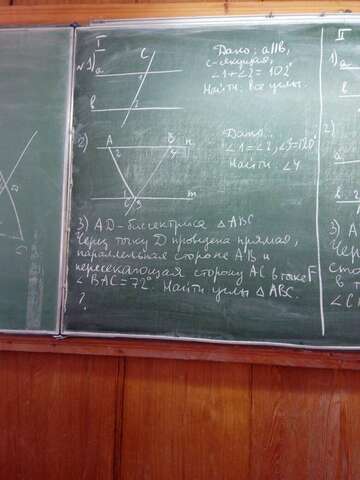 I
II
№1) a
c
Дано: a∥b,
c-секущая,
∠1+∠2= 102°
Найти: все углы.
b
1)
2) A B n
2 4
Дано:
∠1=∠2, ∠3=120°
Найти: ∠4
C 3 m
2)
3) AD-биссектриса △ABC
Через точку D проведена прямая,
параллельная стороне AB и
пересекающая сторону AC в точке F
∠BAC=72°. Найти углы △ABC.
?
3)